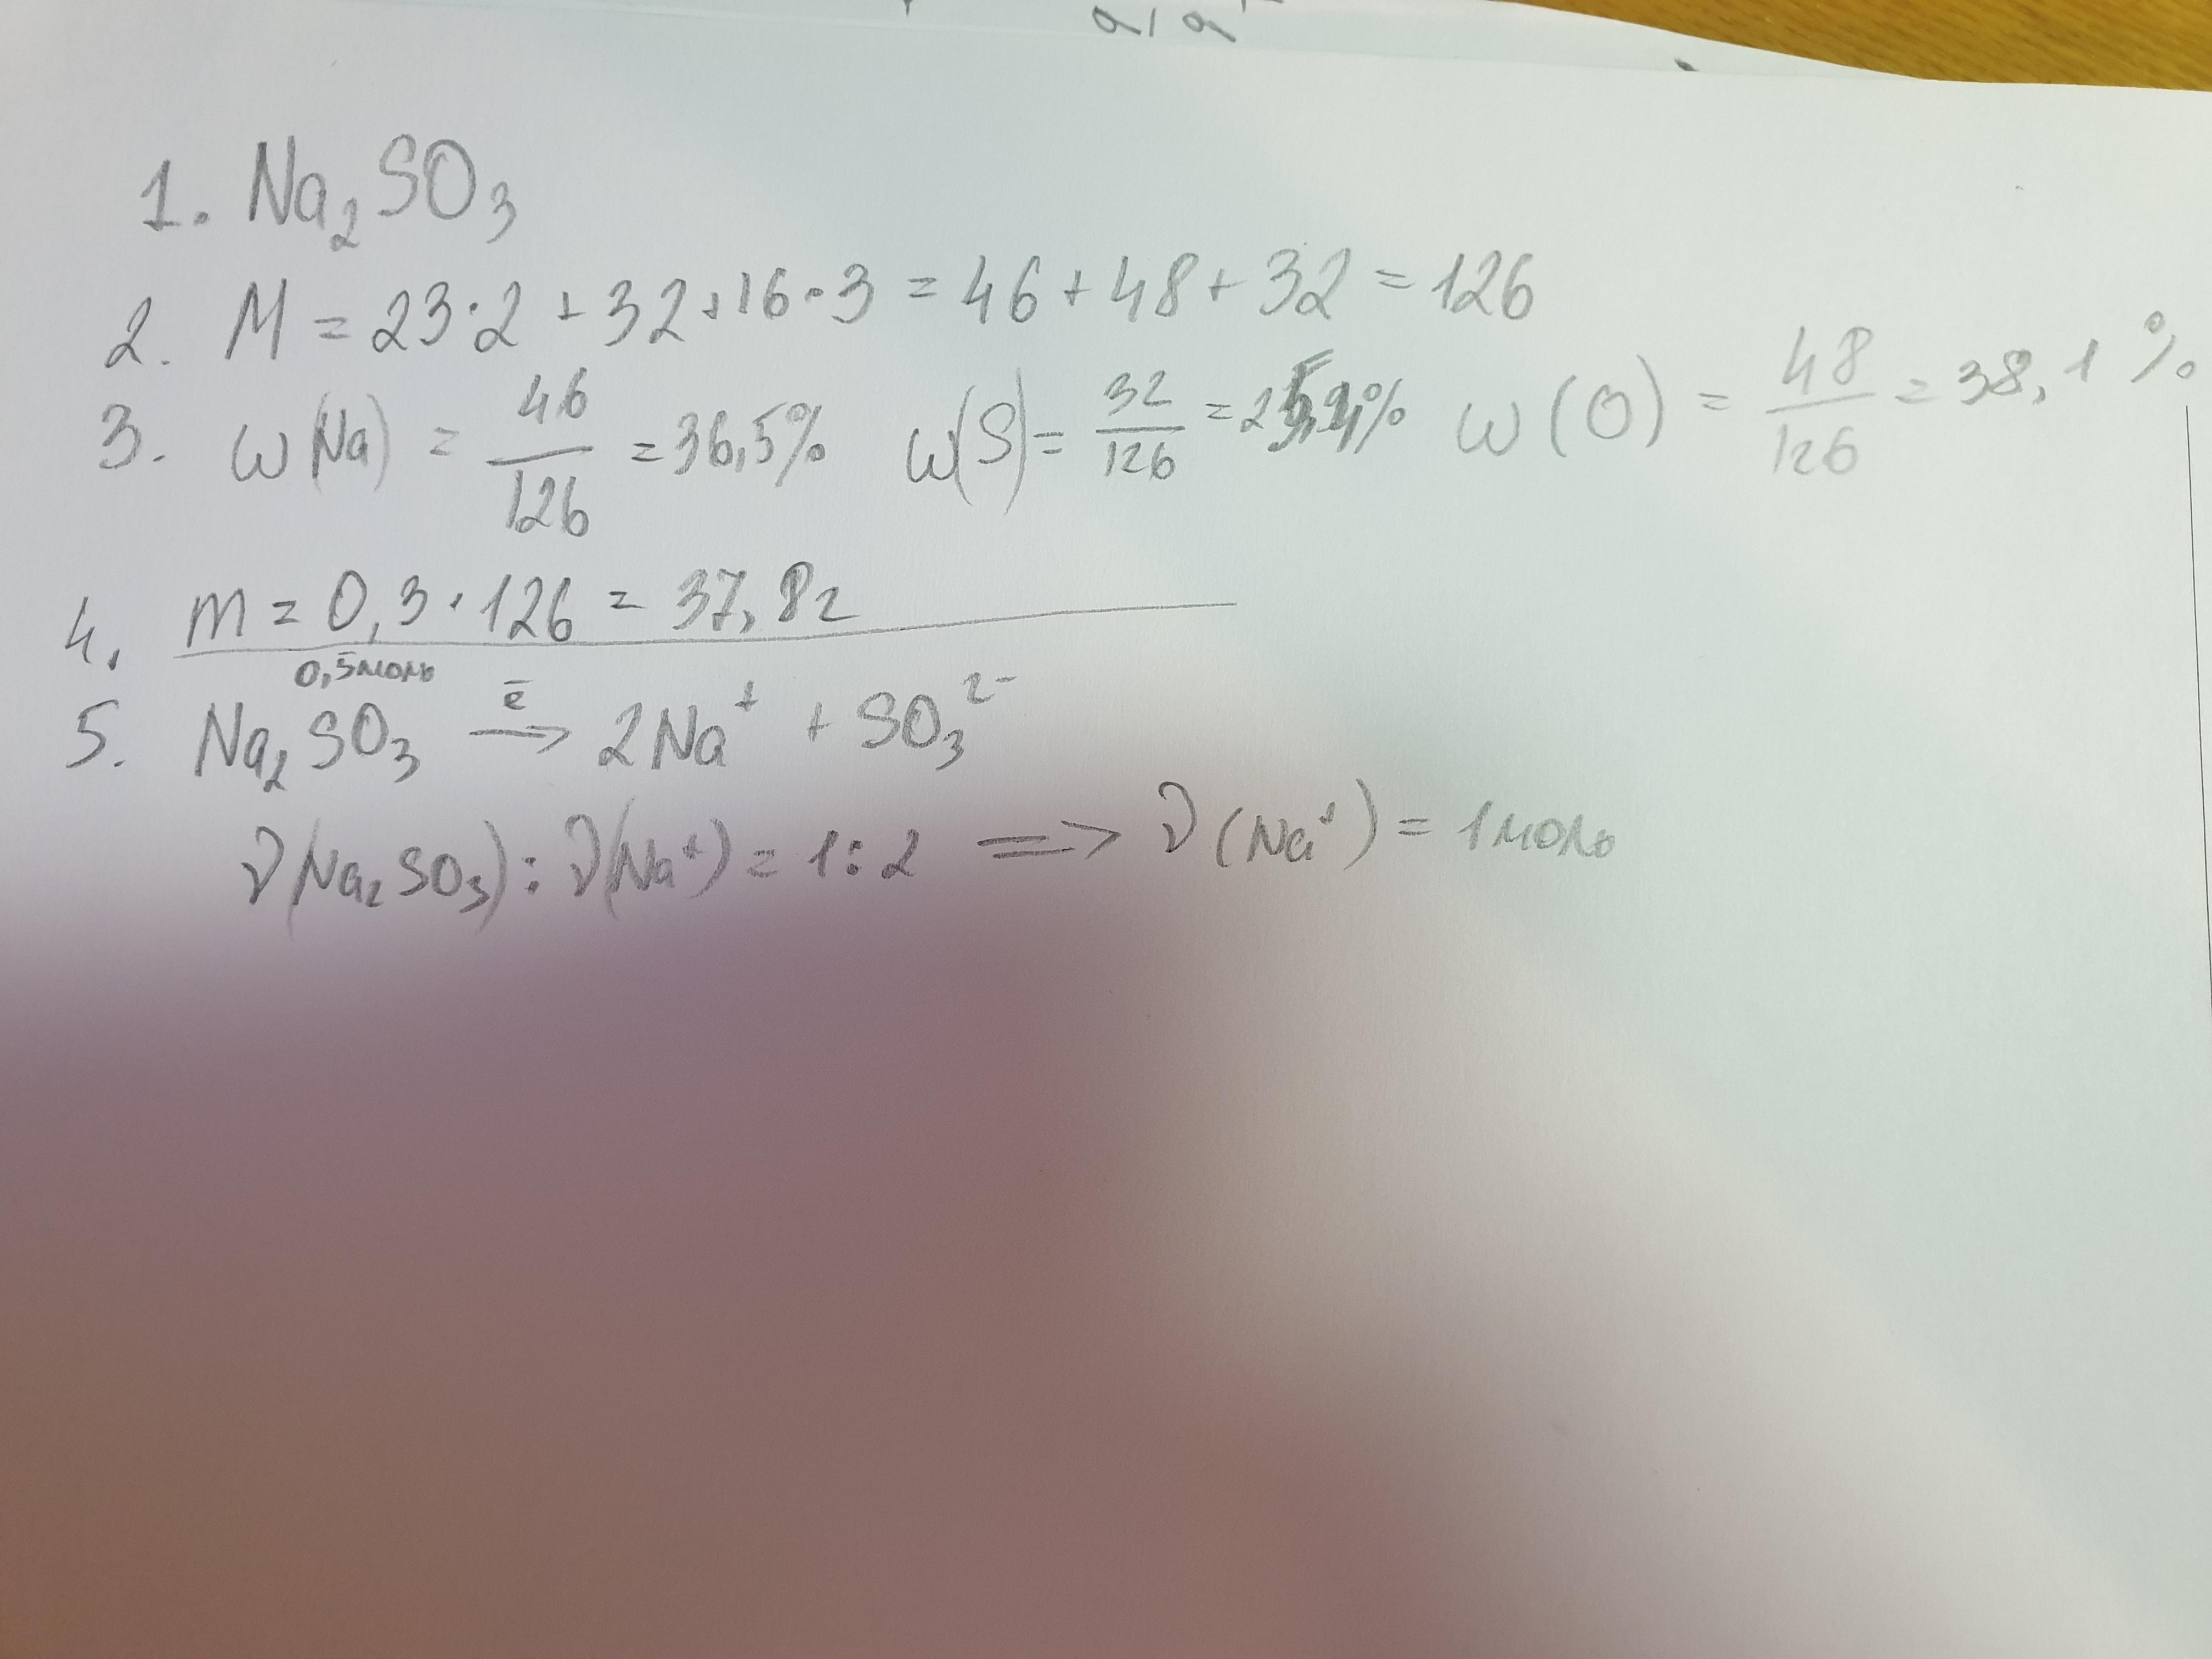 1. Na₂SO₃
2. M = 23·2 + 32 + 16·3 = 46 + 48 + 32 = 126
3. ω(Na) = 46/126 = 36,5% ω(S) = 32/126 = % ω(O) = 48/126 = 38,1%
4. m = 0,3·126 = 37,8г
0,5моль
5. Na₂SO₃ —ē→ 2Na⁺ + SO₃²⁻
ν(Na₂SO₃) : ν(Na⁺) = 1:2 => ν(Na⁺) = 1моль